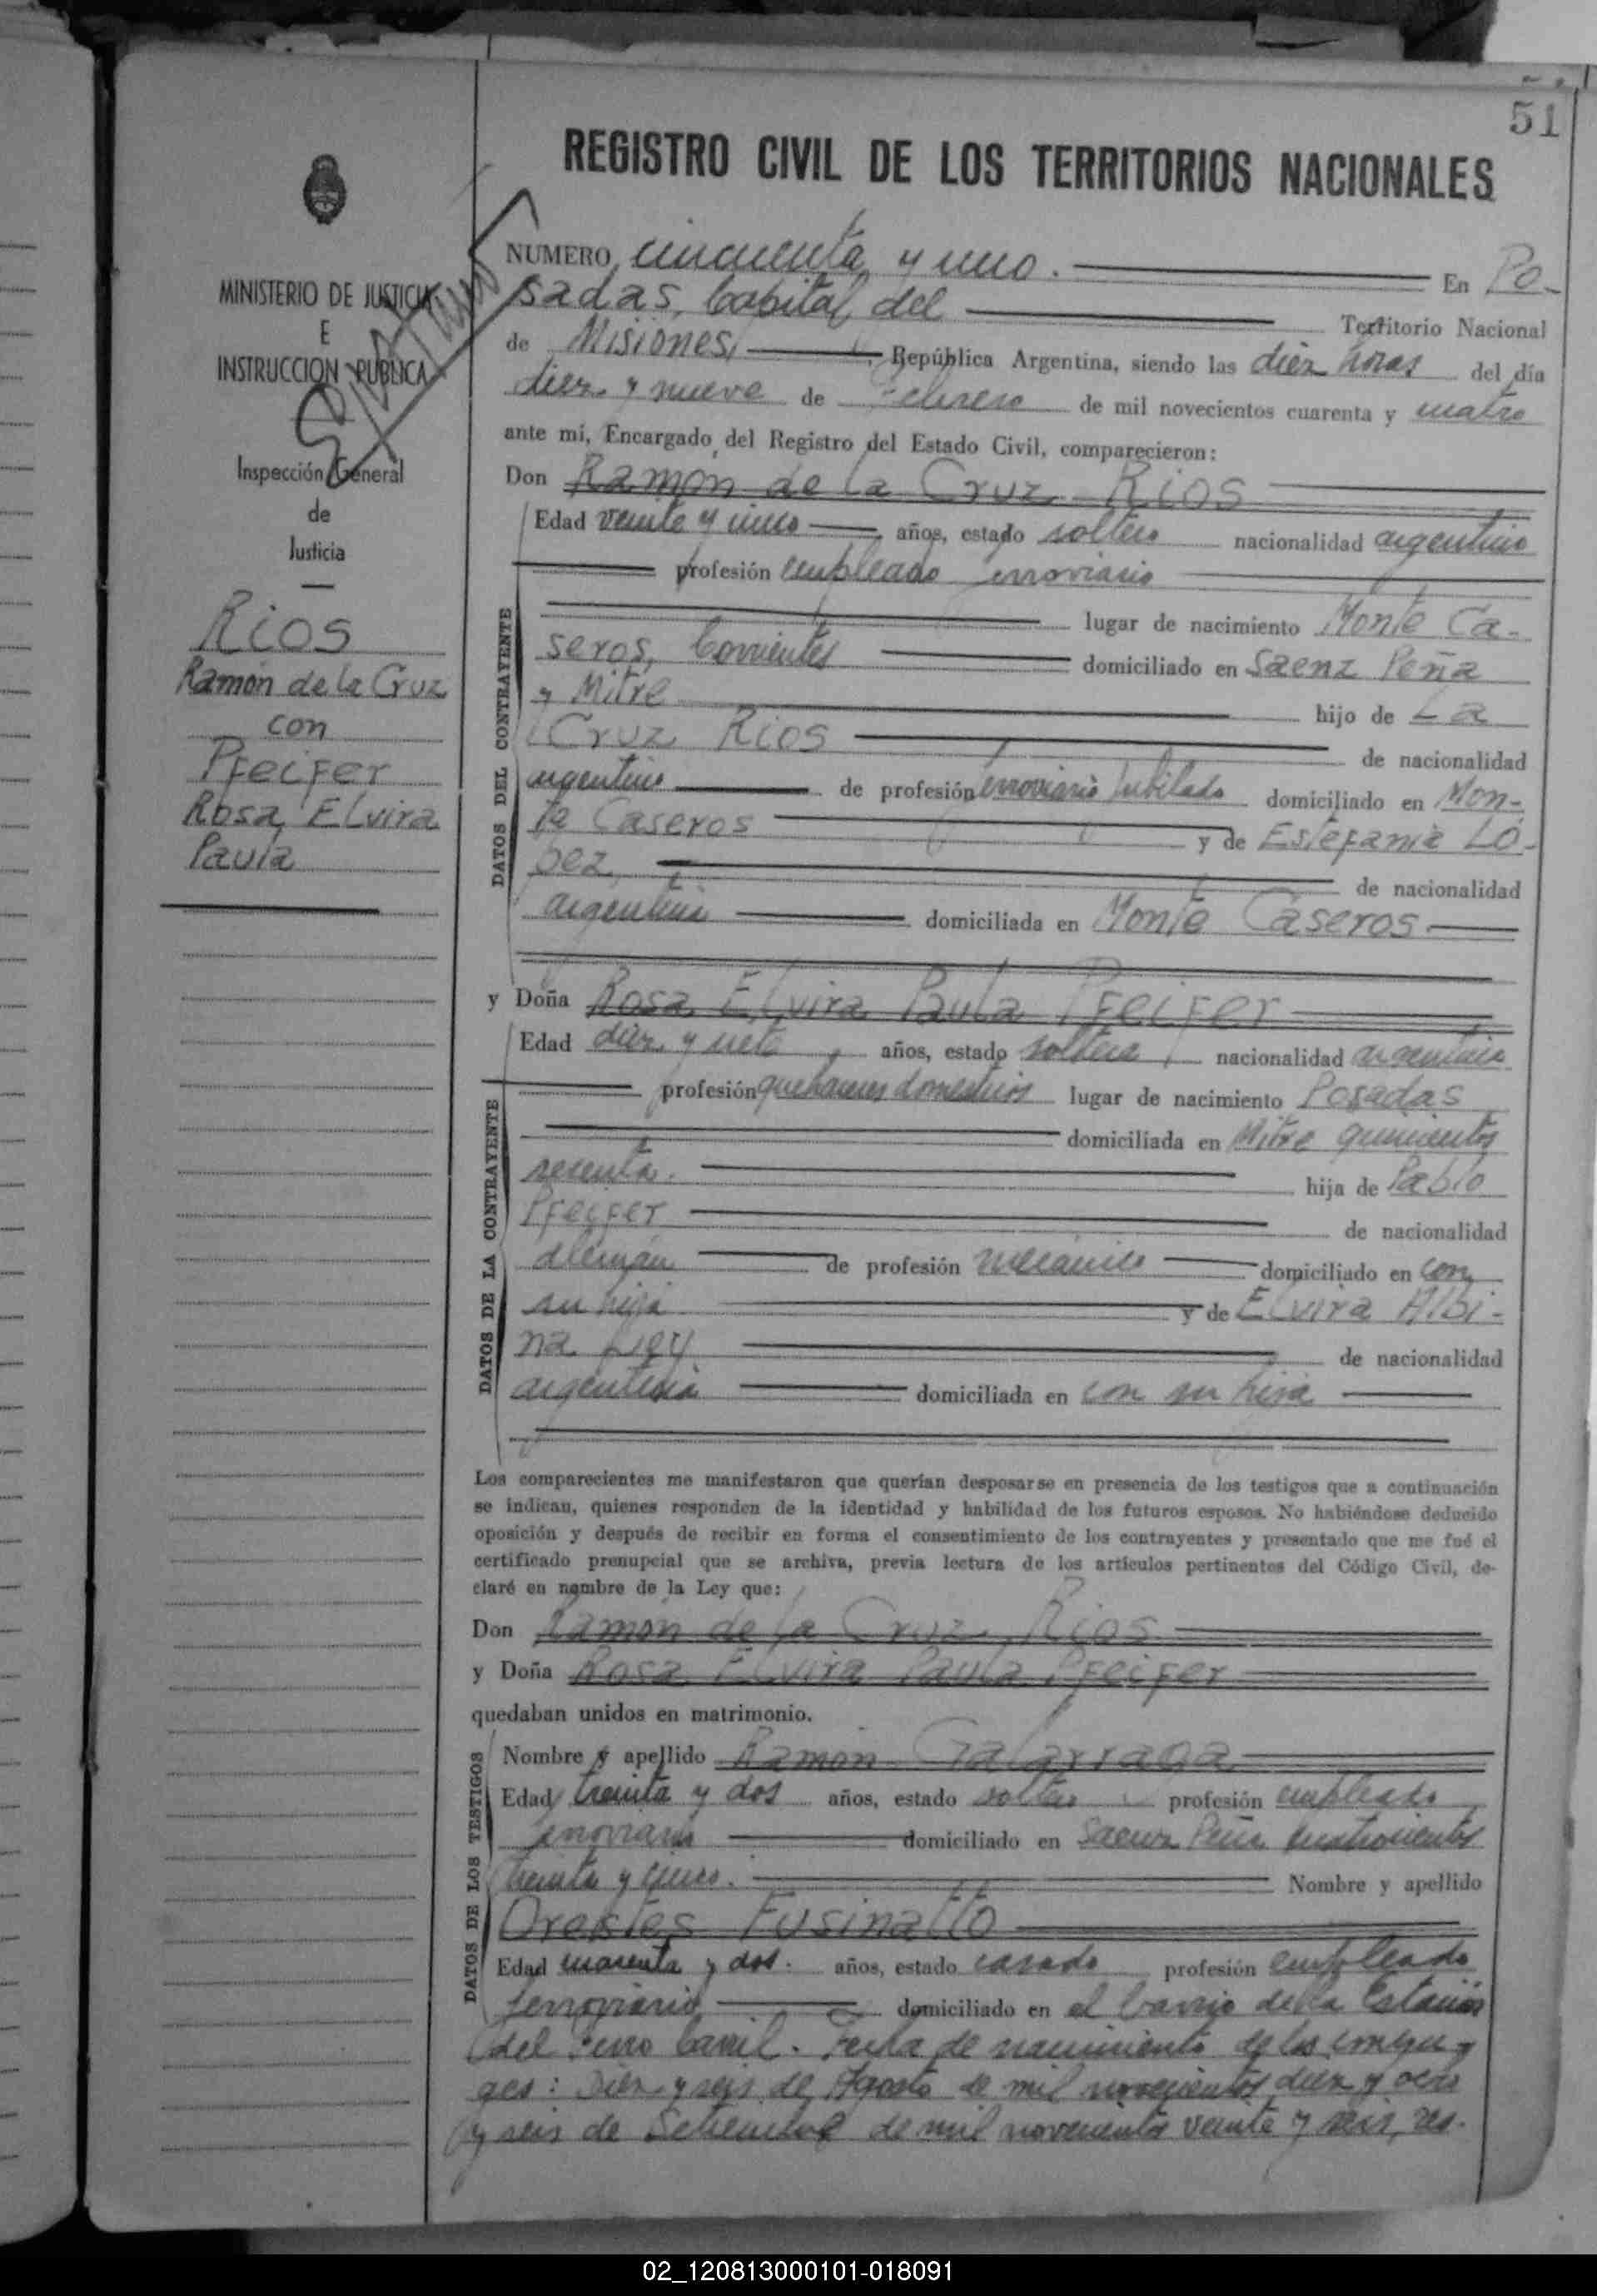 51
REGISTRO CIVIL DE LOS TERRITORIOS NACIONALES
MINISTERIO DE JUSTICIA
E
INSTRUCCION PUBLICA
Inspección General
de
Justicia
Rios
Ramón de la Cruz
con
Pfeifer
Rosa Elvira
Paula
NUMERO cincuenta y uno. En Po-
sadas, Capital del Territorio Nacional
de Misiones, República Argentina, siendo las diez horas del día
diez y nueve de Febrero de mil novecientos cuarenta y cuatro
ante mí, Encargado del Registro del Estado Civil, comparecieron:
Don Ramón de la Cruz Rios
Edad veinte y cinco años, estado soltero nacionalidad argentino
profesión empleado ferroviario
lugar de nacimiento Monte Ca-
seros, Corrientes domiciliado en Saenz Peña
y Mitre hijo de La
Cruz Rios de nacionalidad
argentino de profesión ferroviario jubilado domiciliado en Mon-
te Caseros y de Estefania Ló-
pez, de nacionalidad
argentina domiciliada en Monte Caseros
DATOS DEL CONTRAYENTE
y Doña Rosa Elvira Paula Pfeifer
Edad diez y siete años, estado soltera, nacionalidad argentina
profesión quehaceres domesticos lugar de nacimiento Posadas
domiciliada en Mitre quinientos
sesenta. hija de Pablo
Pfeifer de nacionalidad
alemán de profesión mecánico domiciliado en con
su hija y de Elvira Albi-
na de nacionalidad
argentina domiciliada en con su hija
DATOS DE LA CONTRAYENTE
Los comparecientes me manifestaron que querían desposarse en presencia de los testigos que a continuación
se indican, quienes responden de la identidad y habilidad de los futuros esposos. No habiéndose deducido
oposición y después de recibir en forma el consentimiento de los contrayentes y presentado que me fué el
certificado prenupcial que se archiva, previa lectura de los artículos pertinentes del Código Civil, de-
claré en nombre de la Ley que:
Don Ramón de la Cruz Rios
y Doña Rosa Elvira Paula Pfeifer
quedaban unidos en matrimonio.
Nombre y apellido Ramón Galarraga
Edad treinta y dos años, estado soltero profesión empleado
ferroviario domiciliado en Saenz Peña cuatrocientos
treinta y cinco. Nombre y apellido
Orestes Fusinatto
Edad cuarenta y dos. años, estado casado profesión empleado
ferroviario domiciliado en el barrio de la Estación
del Ferro Carril. Fecha de nacimiento de los conyu-
ges: Diez y seis de Agosto de mil novecientos diez y ocho
y seis de Setiembre de mil novecientos veinte y seis, res-
DATOS DE LOS TESTIGOS
02_120813000101-018091